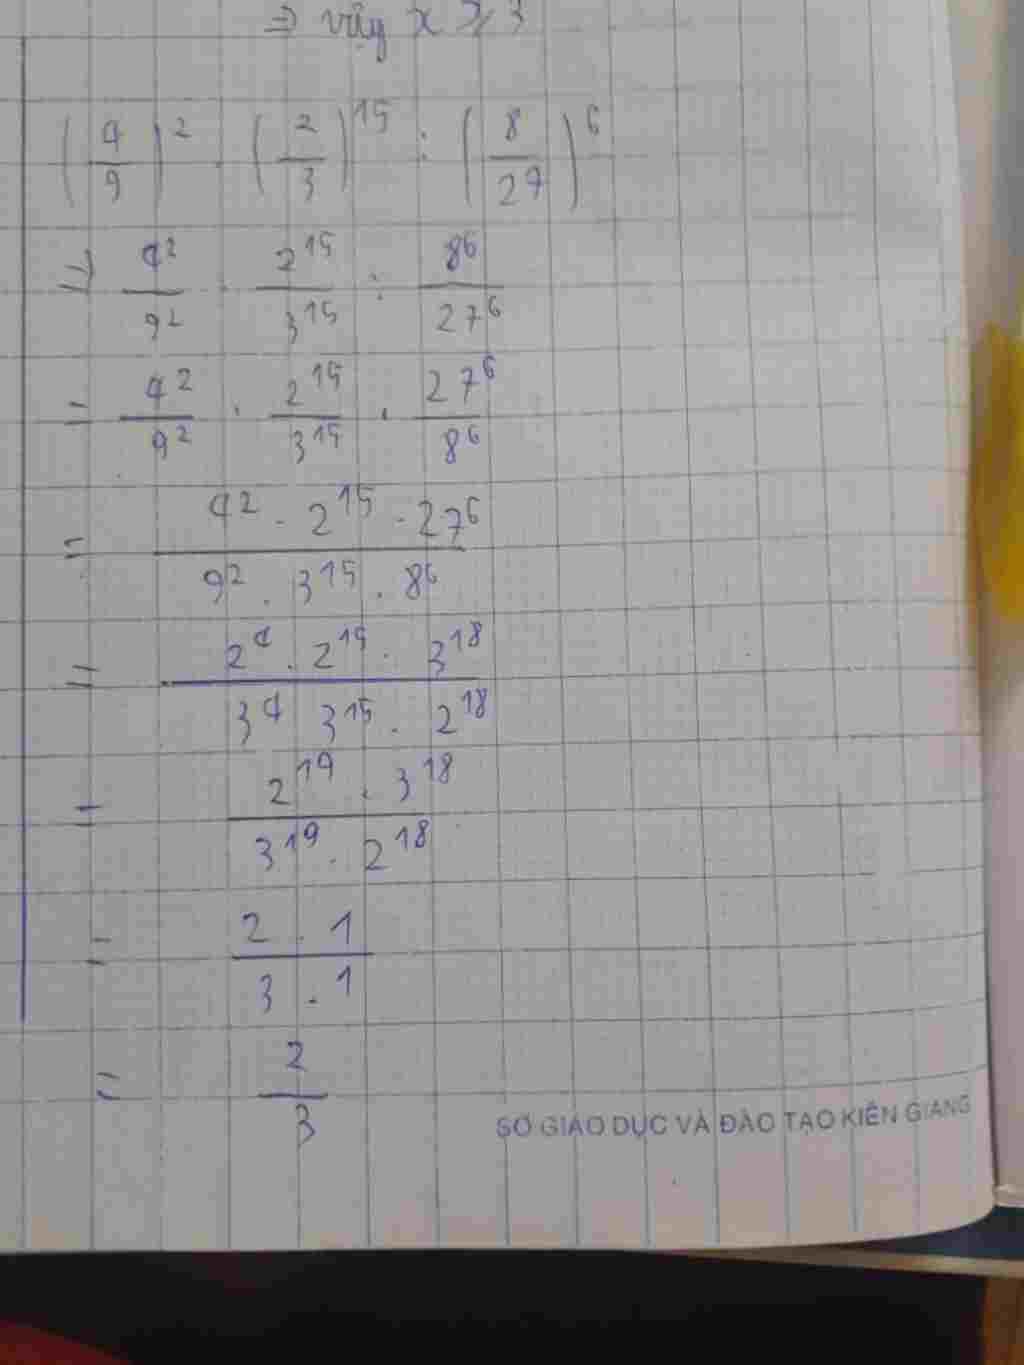 ⇒ vậy x ⩾ 3
(4/9)² · (2/3)¹⁵ : (8/27)⁶
⇒ 4²/9² · 2¹⁵/3¹⁵ : 8⁶/27⁶
= 4²/9² · 2¹⁵/3¹⁵ · 27⁶/8⁶
= 4² · 2¹⁵ · 27⁶ / 9² · 3¹⁵ · 8⁶
= 2⁴ · 2¹⁵ · 3¹⁸ / 3⁴ 3¹⁵ · 2¹⁸
= 2¹⁹ · 3¹⁸ / 3¹⁹ · 2¹⁸
= 2 · 1 / 3 · 1
= 2/3
SỞ GIÁO DỤC VÀ ĐÀO TẠO KIÊN GIANG